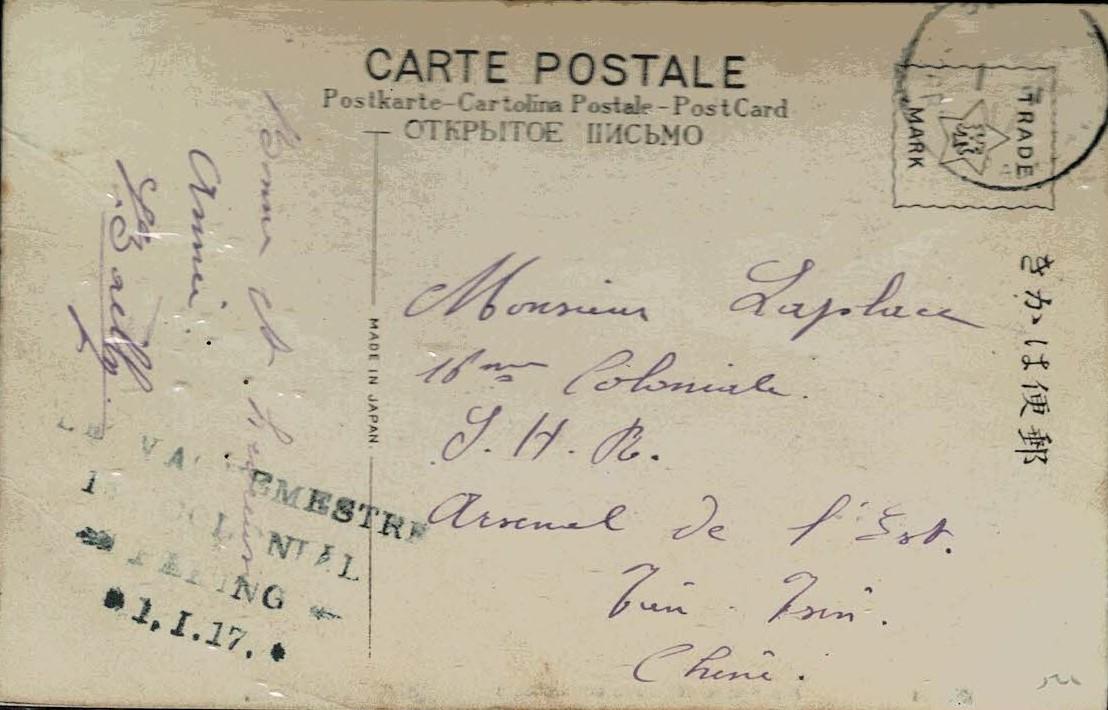 CARTE POSTALE
Postkarte-Cartolina Postale-PostCard
ОТКРЫТОЕ ПИСЬМО
TRADE
MARK
きかは便郵
MADE IN JAPAN.
Bonne et Heureuse
Année.
Monsieur Laplace
16me Coloniale.
S. H. R.
Arsenal de l'Est.
Tien-Tsin.
Chine.
LE VAGUEMESTRE
COLONIAL
PEKING
1.I.17.